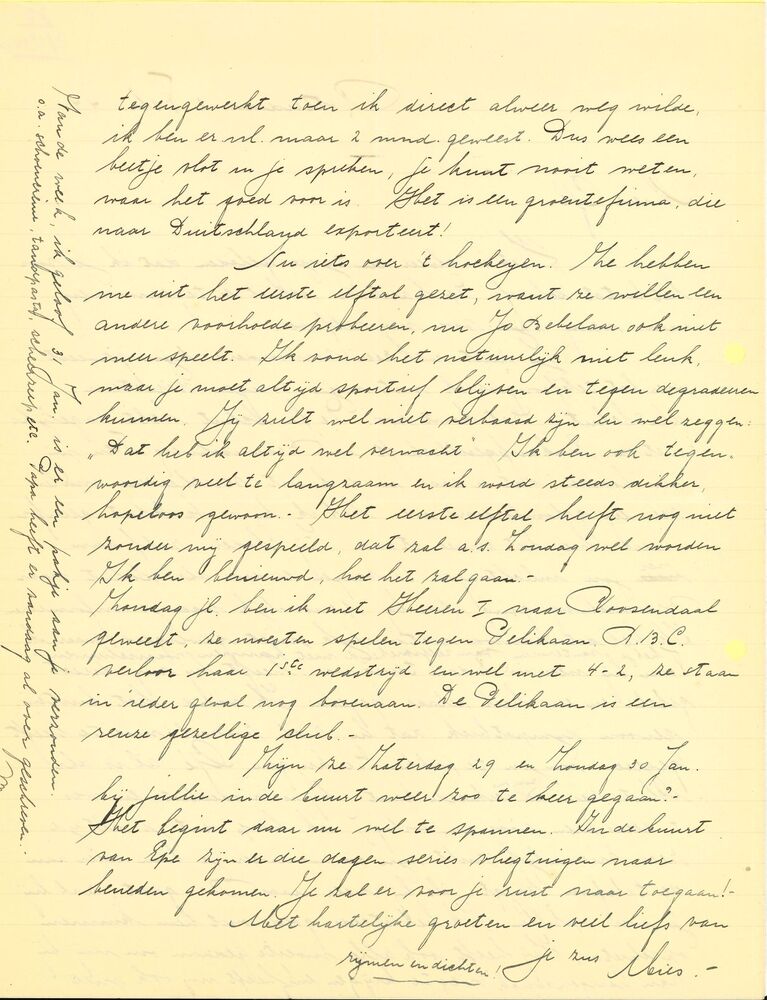 tegengewerkt toen ik direct alweer weg wilde,
ik ben er nl. maar 2 mnd. geweest. Dus wees een
beetje vlot in je spreken, je kunt nooit weten,
waar het goed voor is. Het is een groentefirma, die
naar Duitschland exporteert!
Nu iets over 't hockeyen. Ze hebben
me uit het eerste elftal gezet, want ze willen een
andere voorhoede probeeren, nu Jo Bebelaar ook niet
meer speelt. Ik vond het natuurlijk niet leuk,
maar je moet altijd sportief blijven en tegen degradeeren
kunnen. Jij zult wel niet verbaasd zijn en wel zeggen:
„Dat heb ik altijd wel verwacht" Ik ben ook tegen-
woordig veel te langzaam en ik word steeds dikker,
hopeloos gewoon.- Het eerste elftal heeft nog niet
zonder mij gespeeld, dat zal a.s. Zondag wel worden
Ik ben benieuwd, hoe het zal gaan.-
Zondag jl. ben ik met Heeren I naar Roosendaal
geweest, ze moesten spelen tegen Pelikaan. D.B.C.
verloor haar 1ste wedstrijd en wel met 4-2, ze staan
in ieder geval nog bovenaan. De Pelikaan is een
reuze gezellige club.-
Zijn ze Zaterdag 29 en Zondag 30 Jan.
bij jullie in de buurt weer zoo te keer gegaan?-
Het begint daar nu wel te spannen. In de buurt
van Epe zijn er die dagen series vliegtuigen naar
beneden gekomen. Je zal er voor je rust naar toegaan!-
Met hartelijke groeten en veel liefs van
je zus Mies.-
rijmen en dichten!
Van de week, ik geloof 31 Jan. is er een pakje aan je verzonden.
o.a. schoencrème, tandpasta, scheerzeep etc. Papa heeft er vandaag al over geschreven.-